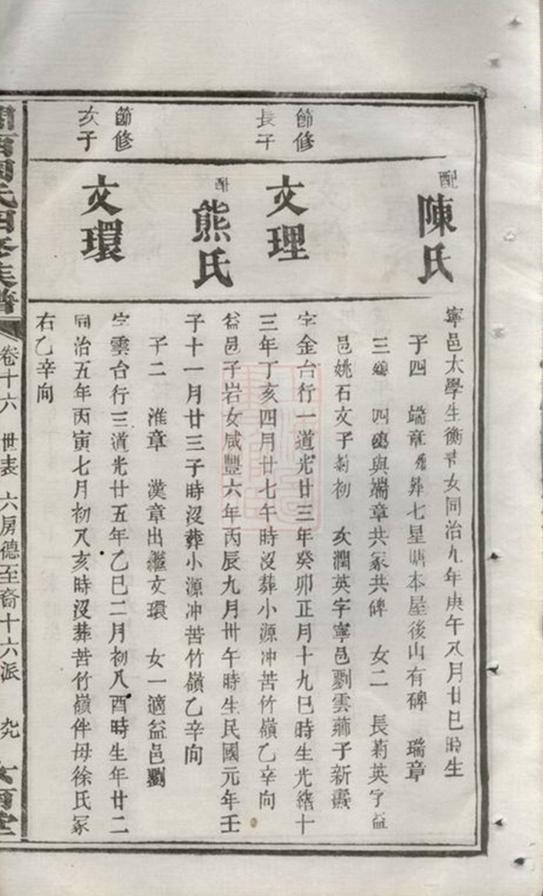 配
陳氏
寧邑太學生衡才女同治九年庚午八月廿巳時生
子四 端章 葬七星塘本屋後山有碑 瑞章
三 四 與端章共冢共碑 女二 長菊英字益
邑姚石文子菊初 次潤英字寧邑劉雲 子新
節修
長子
文理
字金台行一道光廿三年癸卯正月十九巳時生光緒十
三年丁亥四月廿七午時沒葬小源冲苦竹嶺乙辛向
配
熊氏
益邑子岩女咸豐六年丙辰九月卅午時生民國元年壬
子十一月廿三子時沒葬小源冲苦竹嶺乙辛向
子二 淮章 漢章出繼文環 女一適益邑劉
節修
次子
文環
字雲台行三道光廿五年乙巳二月初八酉時生年廿二
同治五年丙寅七月初八亥時沒葬苦竹嶺伴母徐氏冢
右乙辛向
氏四修族譜
卷十六 世表 六房德至裔十六派 九